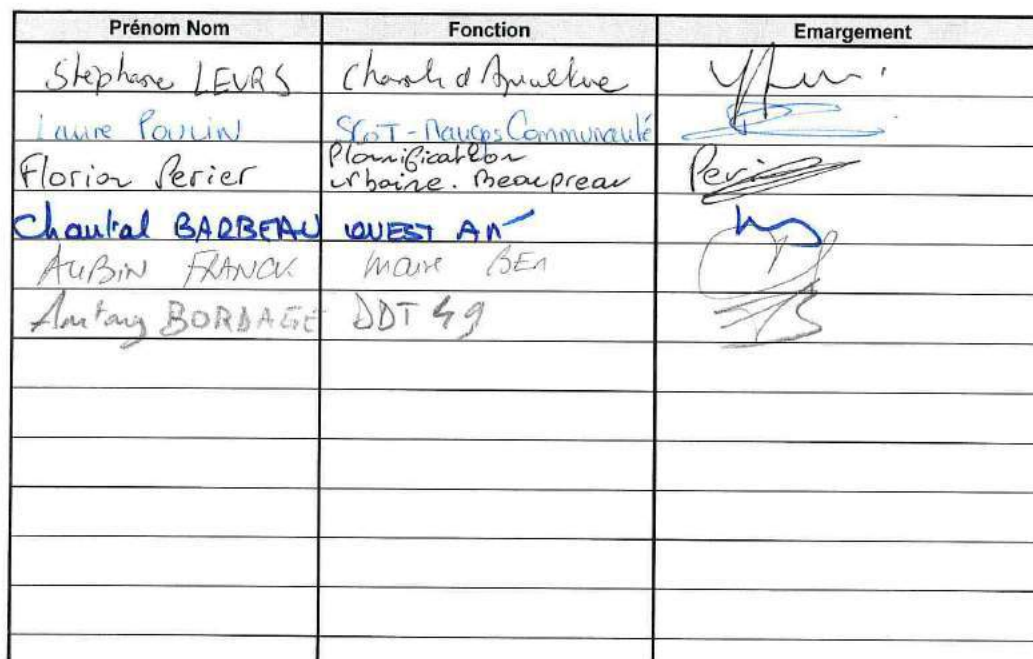 Prénom Nom Fonction Emargement
Stéphane LEURS Chamb d'Agriculture
Laure Poulin SCoT - Mauges Communauté
Planification
Florian Perier urbaine. Beaupreau Peri
Chantal BARBEAU OUEST
AUBIN FRANCK maire BEM
Antony BORDAGE DDT 49